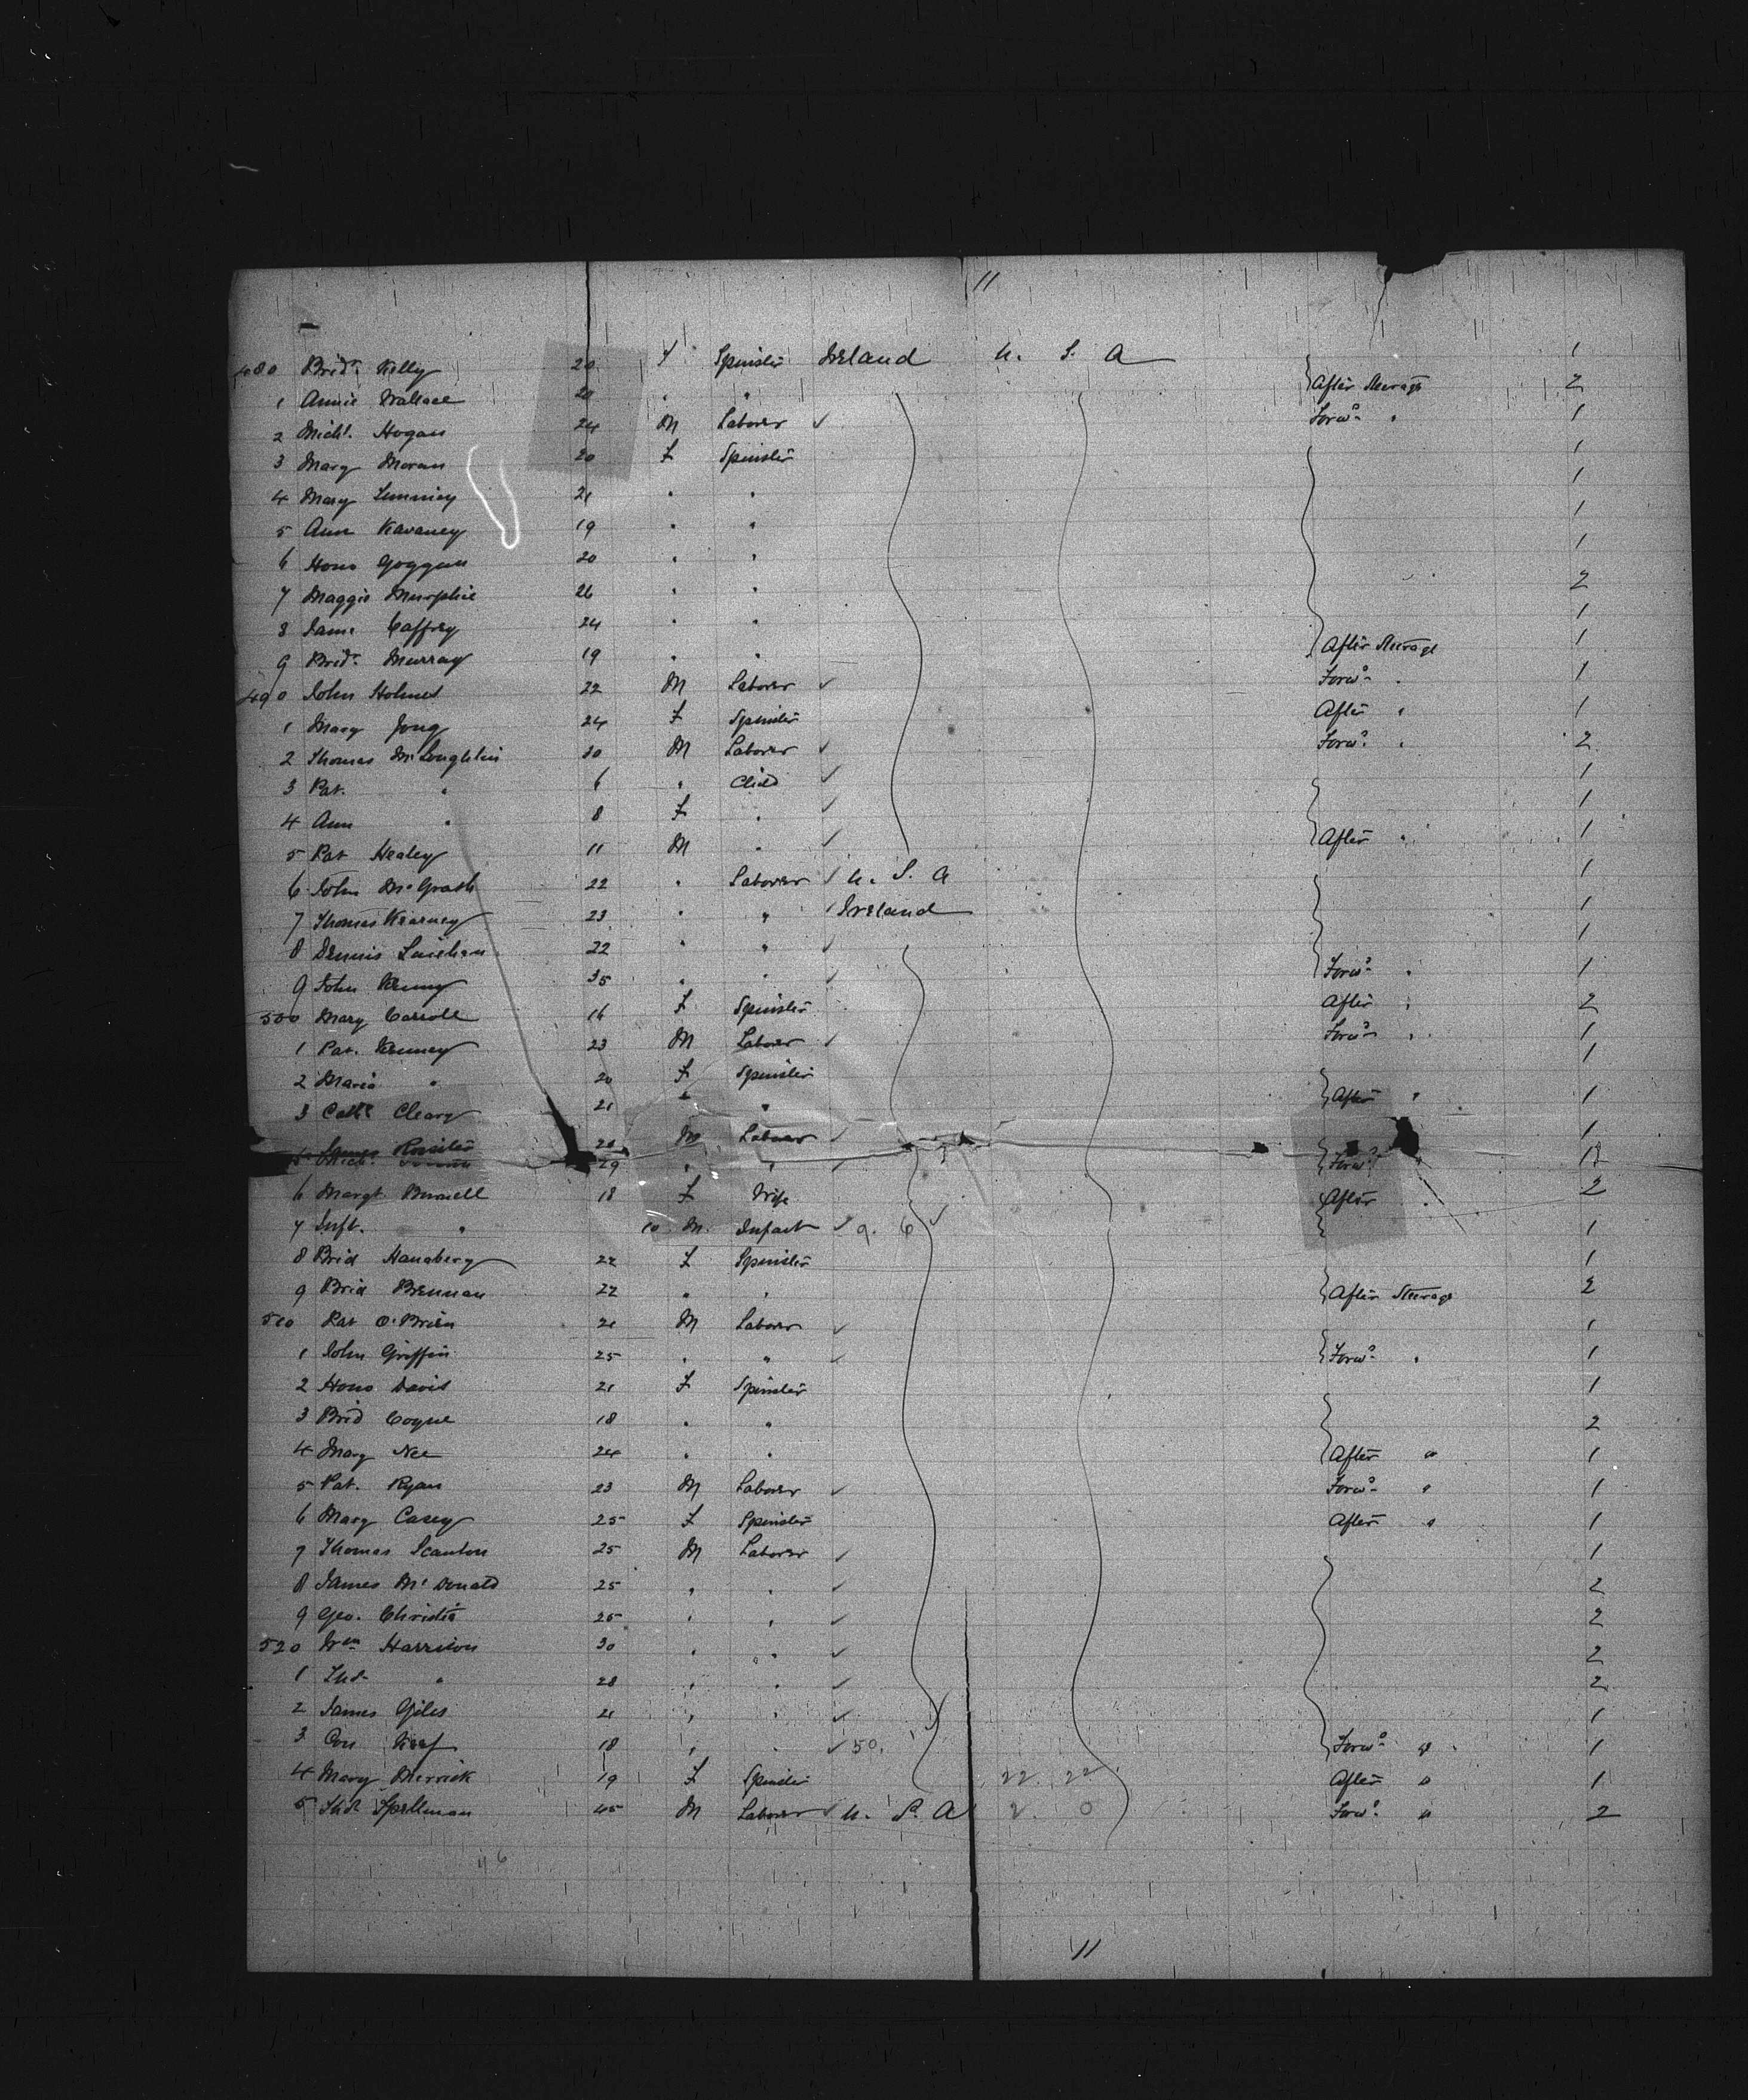 11
480 Brid. Kelly 20 f Spinster Ireland U. S. A 1
1 Annie Wallace 20 " " After Steerage 2
2 Michl. Hogan 24 M Laborer ✓ Forwd " 1
3 Mary Moran 20 F Spinster 1
4 Mary 21 " " 1
5 Ann Kavaney 19 " " 1
6 Hono Goggan 20 " " 1
7 Maggie Murphie 26 " " 2
8 Jane Caffrey 24 " " 1
9 Brid. Murray 19 " " After Steerage 1
490 John Holmes 22 M Laborer ✓ Forwd " 1
1 Mary 24 F Spinster After " 1
2 Thomas McLoughlin 30 M Laborer ✓ Forwd " 2
3 Pat. " 6 " Child ✓ 1
4 Ann " 8 F " ✓ 1
5 Pat Healey 11 M " ✓ After " 1
6 John McGrath 22 " Laborer ✓ U. S. A 1
7 Thomas Kearney 23 " " ✓ Ireland 1
8 Dennis 22 " " ✓ 1
9 John Kenny 35 " " ✓ Forwd " 1
500 Mary Carroll 16 F Spinster After " 2
1 Pat. Kenney 23 M Laborer ✓ Forwd " 1
2 Maria " 20 F Spinster 1
3 Cathe Cleary 21 " " After " 1
James 20 M Laborer ✓ 1
Mich. 29 " " ✓ Forwd
6 Margt Burnell 18 F Wife After " 2
7 Inft. " 10 M. Infant ✓ 9. 6 ✓ 1
8 Brid Hansberry 22 F Spinster 1
9 Brid Brennan 22 " " After Steerage 2
510 Pat O'Brien 21 M Laborer ✓ 1
1 John Griffin 25 " " ✓ Forwd " 1
2 Hono Davis 21 F Spinster 1
3 Brid Coyne 18 " " 2
4 Mary Nee 24 " " After " 1
5 Pat. Ryan 23 M Laborer ✓ Forwd " 1
6 Mary Casey 25 F Spinster After " 1
7 Thomas Scanlon 25 M Laborer ✓ 1
8 James McDonald 25 " " ✓ 2
9 Geo. Christie 25 " " ✓ 2
520 Wm Harrison 30 " " ✓ 2
1 Thos " 28 " " ✓ 2
2 James Giles 21 " " ✓ 1
3 Con Keef 18 " " ✓ 50. Forwd " 1
4 Mary Merrick 19 F Spinster 22. 22 After " 1
5 Thos Spellman 45 M Laborer ✓ U. S. A 2. 0 Forwd " 2
46
11